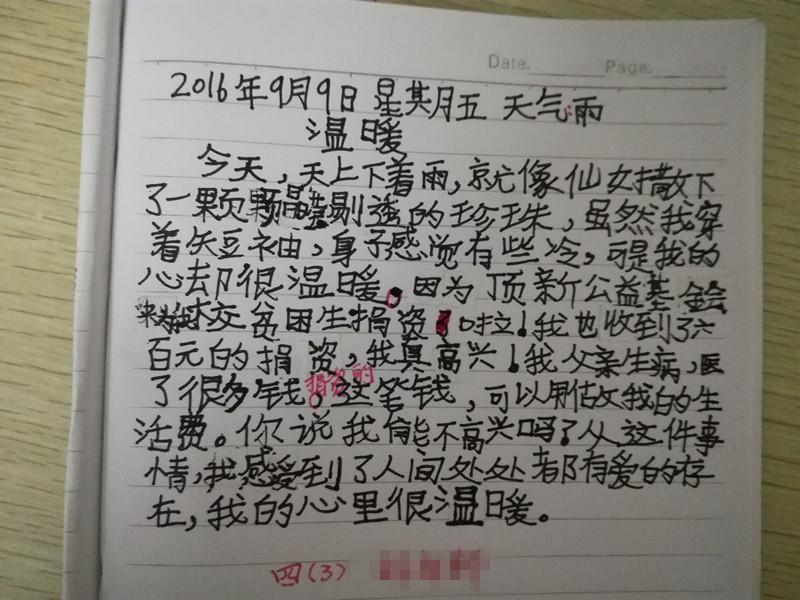 Date. Page.
2016年9月9日 星期五 天气雨
温暖
今天,天上下着雨,就像仙女撒下
了一颗颗晶莹剔透的珍珠,虽然我穿
着短袖,身子感觉有些冷,可是我的
心却很温暖。因为顶新公益基金会
来为我校贫困生捐资啦!我也收到了六
百元的捐资,我真高兴!我父亲生病,医
了很多钱。捐资的这笔钱,可以用做我的生
活费。你说我能不高兴吗?从这件事
情,我感受到了人间处处都有爱的存
在,我的心里很温暖。
四(3)